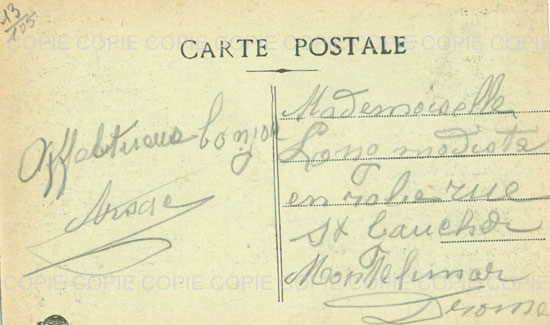 13
705
COPIE COPIE COPIE COPIE COPIE COPIE COPIE
CARTE POSTALE
Affectueux bonjour
Mademoiselle
Long modiste
en robe rue
St
Montelimar
Drome
COPIE COPIE COPIE COPIE COPIE COPIE COPIE